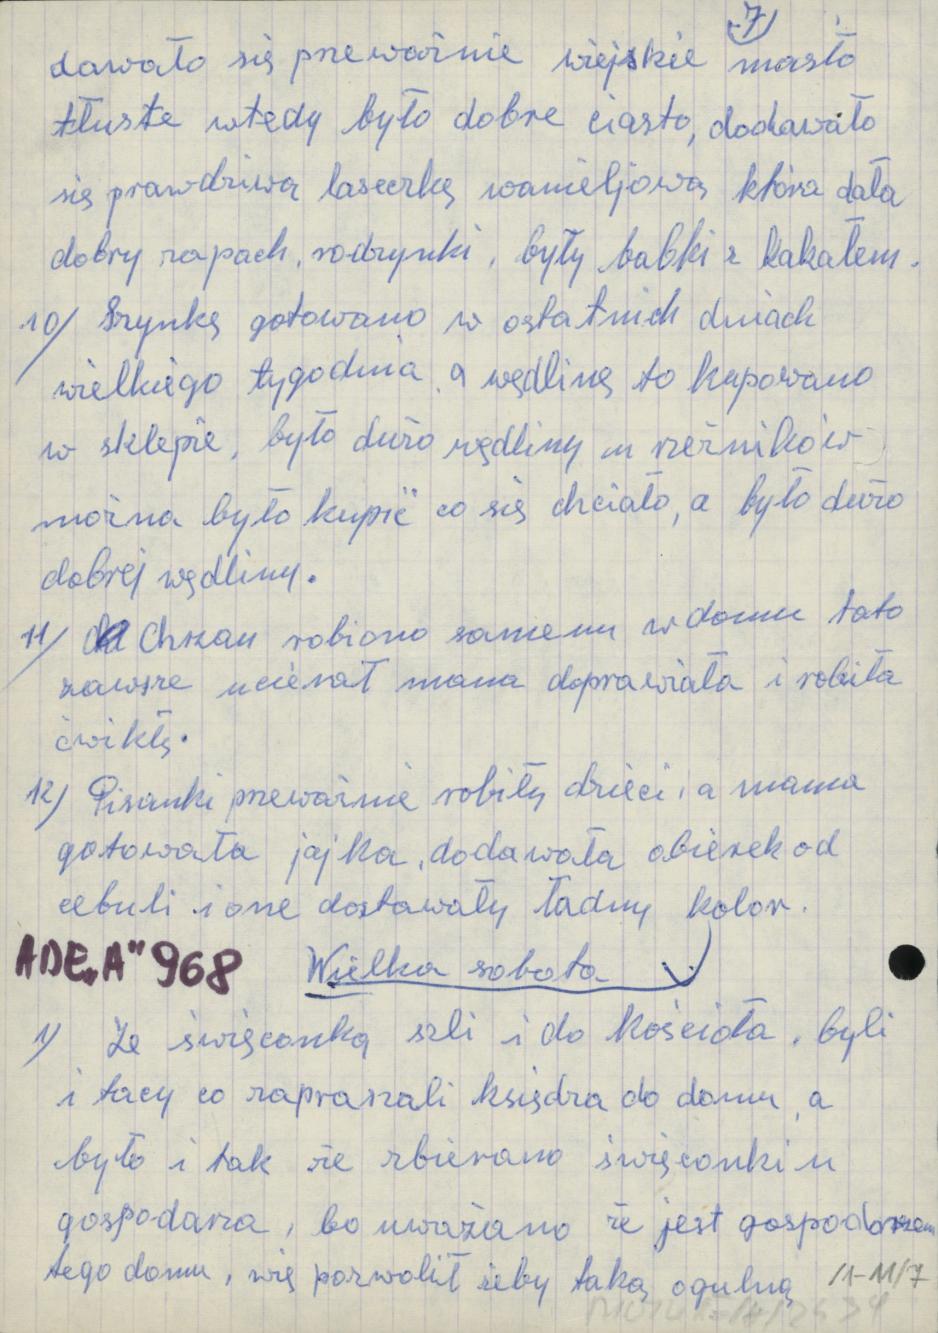 7)
dawało się przeważnie wiejskie masło
tłuste wtedy było dobre ciasto, dodawało
się prawdziwą laseczkę waneljową która dała
dobry zapach, rodzynki, były babki z kakałem.
10/ Szynkę gotowano w ostatnich dniach
wielkiego tygodnia, a wędlinę to kupowano
w sklepie, było dużo wędliny u rzeźników
można było kupić co się chciało, a było dużo
dobrej wędliny.
11/ Chrzan robiono samemu w domu tato
zawsze ucierał mama doprawiała i robiła
ćwikłę.
12/ Pisanki przeważnie robiły dzieci, a mama
gotowała jajka, dodawała obierek od
cebuli i one dostawały ładny kolor.
ADE„A" 968 Wielka sobota
1) Ze święconką szli i do Kościoła, byli
i tacy co zapraszali księdza do domu, a
było i tak że zbierano święconki u
gospodarza, bo uważano że jest gospodarzem
tego domu, więc pozwolił żeby taką ogulną
/1-11/7